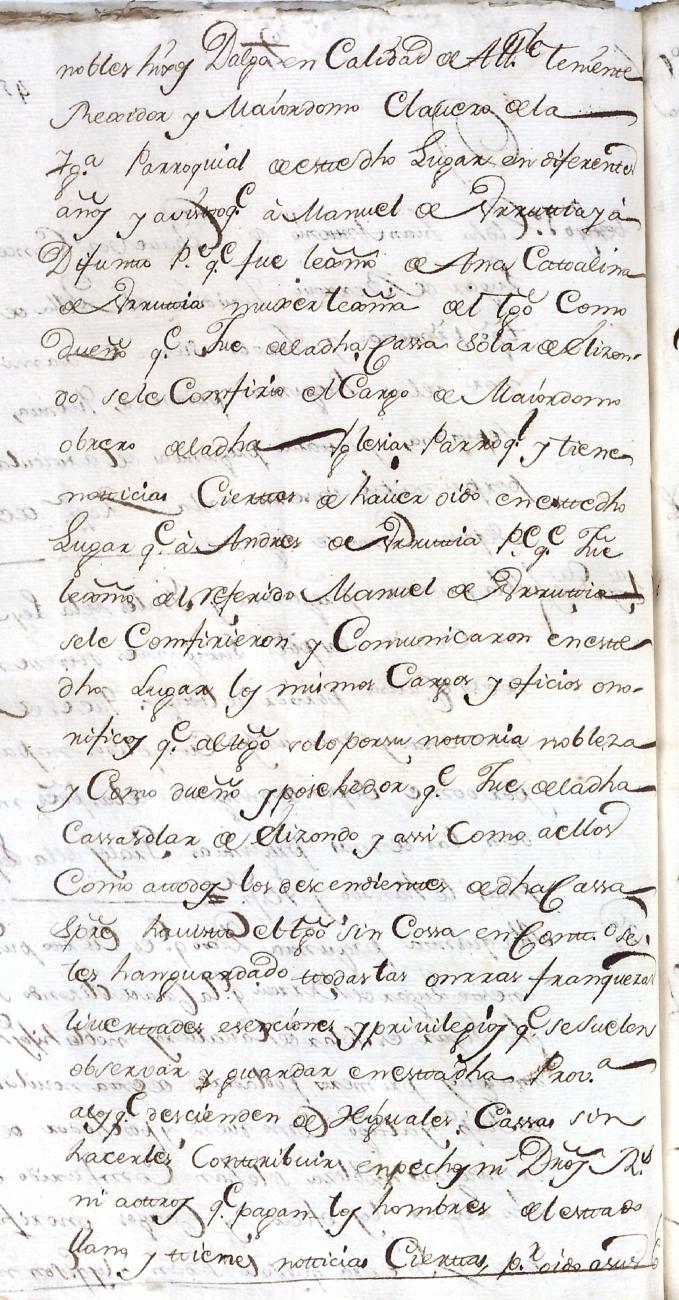 nobles hijos Dalgo en Calidad de All.de teniente
Rexidor y Maiordomo Clavero dela
Ig.a Parroquial de este dho Lugar en diferentes
años y a visto q.e à Manuel de Vrrutia yà
Difunto P.e q.e fue lexmo de Ana Catalina
de Vrrutia muxer lexma del tgo Como
dueño q.e Fue dela dha Cassa Solar de Elizon-
do, sele Comfirio el Cargo de Maiordomo
obrero dela dha Iglesia Parroq.l y tiene
notticias Ciertas de haver oido en este dho
Lugar q.e à Andres de Vrrutia P.e q.e Fue
lexmo del referido Manuel de Vrrutia
sele Comfirieron y Comunicaron en este
dho Lugar los mismos Cargos y oficios ono-
rificos q.e al tgo solo por su notoria nobleza
y Como dueño y posehedor q.e Fue dela dha
Cassa solar de Elizondo y assi Como a ellos
Como a todos los descendientes de dha Cassa
Spre ha visto el tgo sin Cossa en Contt.o se
les han guardado todas las onrras franquezas
livertades esenciones y privilegios q.e se suelen
observar y guardar en esta dha Prov.a
a los q.e descienden de Higuales Cassas sin
hacerles Contribuir en pechos ni Dros R.s
ni a otros q.e pagan los hombres del estado
llano y tiene notticias Ciertas, p.r oido a sus